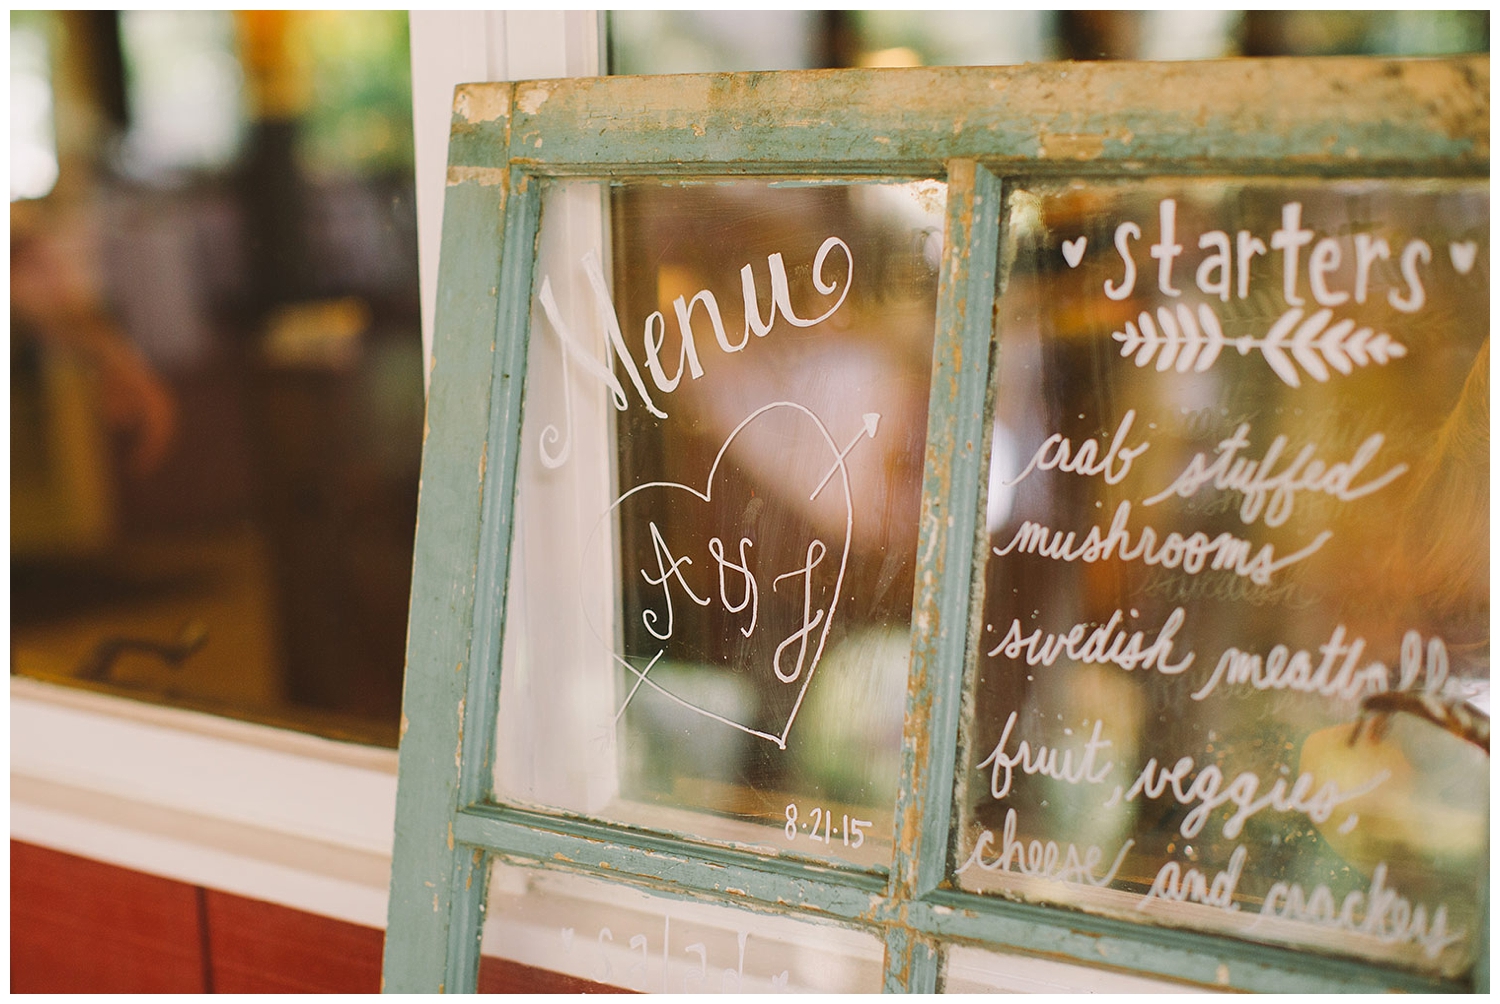 Menu
A & J
8·21·15
starters
crab stuffed
mushrooms
swedish meatballs
fruit, veggies,
cheese and crackers
salad